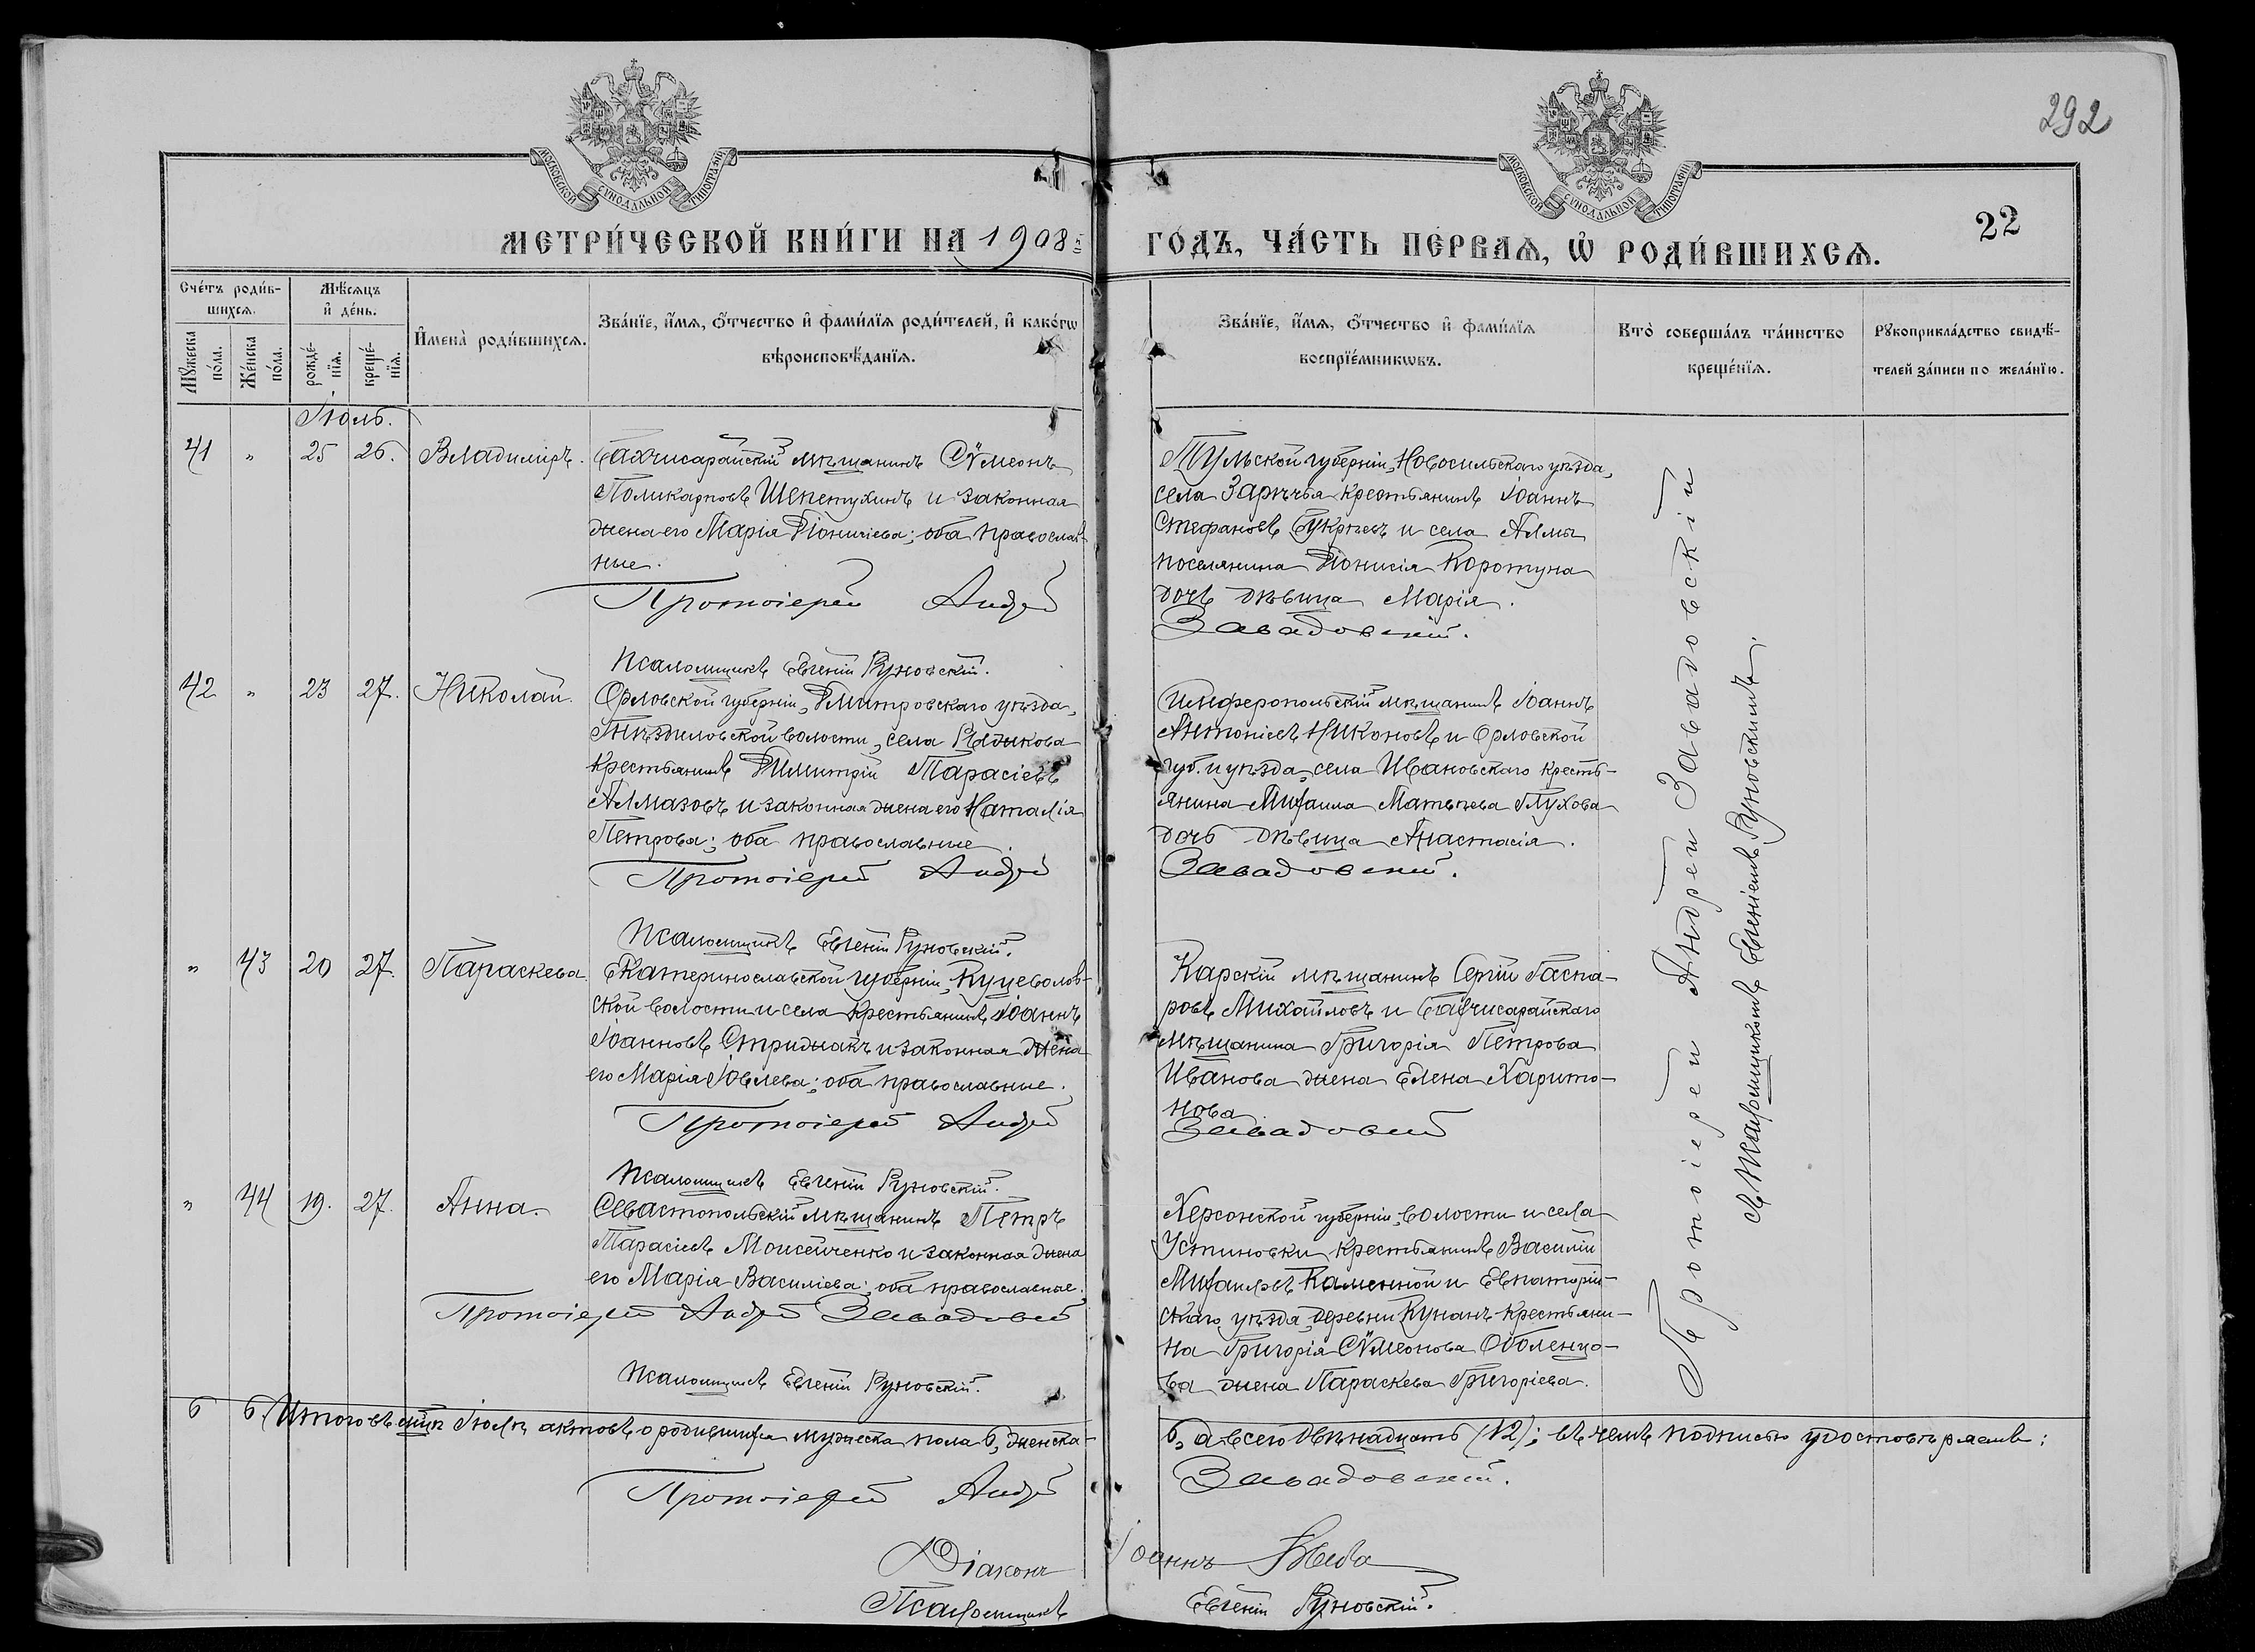 292
МОСКОВСКОЙ СѴНОДАЛЬНОЙ ТИПОГРАФІИ
МОСКОВСКОЙ СѴНОДАЛЬНОЙ ТИПОГРАФІИ
22
МЕТРИ́ЧЕСКОЙ КНИ́ГИ НА 1908й
ГО́ДЪ, ЧА́СТЬ ПЕ́РВАѦ, Ѡ҆ РОДИ́ВШИХСѦ.
Сче́тъ роди́в-
шихсѧ.
Мꙋ́жеска по́ла.
Же́нска по́ла.
Мѣ́сѧцъ
и҆ де́нь.
рожде́-
нїѧ.
креще́-
нїѧ.
И҆мена̀ роди́вшихсѧ.
Зва́нїе, и҆́мѧ, ѻ҆́тчество и҆ фами́лїѧ роди́телей, и҆ како́гѡ
вѣроисповѣ́данїѧ.
Зва́нїе, и҆́мѧ, ѻ҆́тчество и҆ фами́лїѧ
воспрїе́мникѡвъ.
Кто̀ соверша́лъ та́инство
креще́нїѧ.
Рꙋкоприкла́дство свидѣ́-
телей за́писи по жела́нїю.
Іюль.
41 " 25 26. Владиміръ.
Бахчисарайскій мѣщанинъ Сѵмеонъ
Поликарповъ Шепетухинъ и законная
жена его Марія Діонисіева; оба православ-
ные.
Протоіерей Андрей
Псаломщикъ Евгеній Руновскій.
Тульской губерніи, Новосильскаго уѣзда,
села Зарѣчья крестьянинъ Іоаннъ
Стефановъ Букрѣевъ и села Алмы
поселянина Діонисія Коротуна
дочь дѣвица Марія.
Завадовскій.
42 " 23 27. Николай.
Орловской губерніи, Дмитровскаго уѣзда,
Гнѣздиловской волости, села
крестьянинъ Димитрій Тарасіевъ
Алмазовъ и законная жена его Наталія
Петрова; оба православные.
Протоіерей Андрей
Псаломщикъ Евгеній Руновскій.
Симферопольскій мѣщанинъ Іоаннъ
Антоніевъ Никоновъ и Орловской
губ. и уѣзда, села Ивановскаго кресть-
янина Михаила Матѳѣева Глухова
дочь дѣвица Анастасія.
Завадовскій.
" 43 20 27. Параскева.
Екатеринославской губерніи, Куцеволов-
ской волости и села крестьянинъ Іоаннъ
Іоанновъ Стрижакъ и законная жена
его Марія Іовлева; оба православные.
Протоіерей Андрей
Псаломщикъ Евгеній Руновскій.
Карскій мѣщанинъ Сергій Гаспа-
ровъ Михайловъ и Бахчисарайскаго
мѣщанина Григорія Петрова
Иванова жена Елена Харито-
нова.
Завадовскій
" 44 19. 27. Анна.
Севастопольскій мѣщанинъ Петръ
Тарасіевъ Моисейченко и законная жена
его Марія Василіева; оба православные.
Протоіерей Андрей Завадовскій
Псаломщикъ Евгеній Руновскій.
Херсонской губерніи, волости и села
Устиновки крестьянинъ Василій
Михаиловъ Каменной и Евпаторій-
скаго уѣзда, деревни Кунанъ крестьяни-
на Григорія Сѵмеонова Оболенцо-
ва жена Параскева Григоріева.
Протоіерей Андрей Завадовскій
съ Псаломщикомъ Евгеніемъ Руновскимъ.
6 6. Итого въ мцѣ Іюлѣ актовъ о родившихся мужеска пола 6, женска-
6, а всего двѣнадцать (12); въ чемъ подписью удостовѣряемъ:
Протоіерей Андрей Завадовскій.
Діаконъ Іоаннъ
Псаломщикъ Евгеній Руновскій.